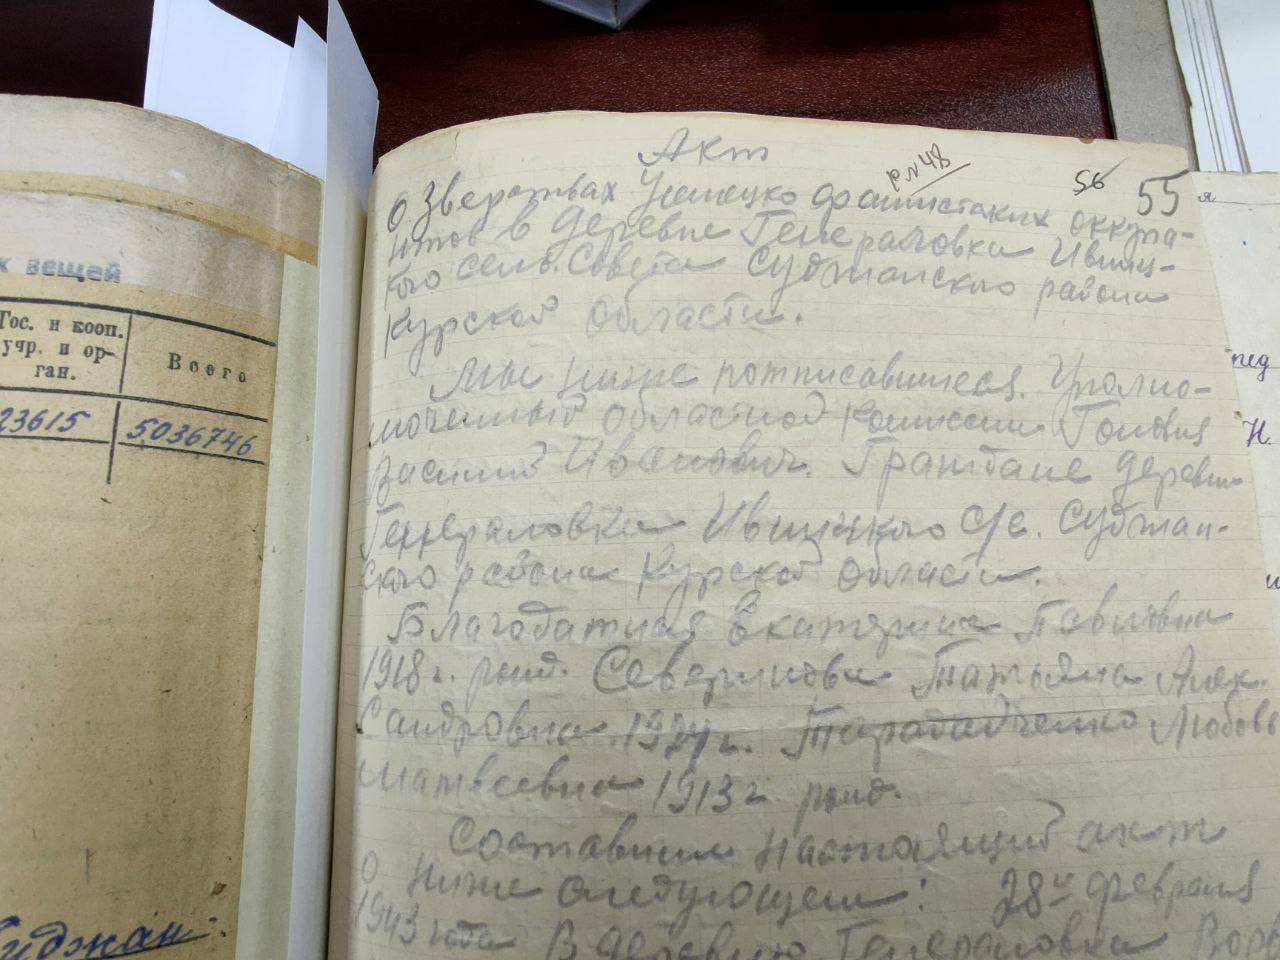 к вещей
Гос. и кооп.
учр. и ор-
ган.
Всего
23615
5036746
Акт
р №48
56
55
О Зверствах Немецко фашистских оккупа-
нтов в деревне Генераловка Ивниц-
кого сель. Совета Суджанского района
Курской области.
Мы ниже потписавшиеся. Уполно-
моченный областной комиссии
Василий Иванович. Граждане деревни
Генераловка Ивницкого с/с. Суджан-
ского района Курской области.
Благодатная Екатерина Павловна
1918 г. рожд. Северинова Татьяна Алек-
сандровна 1924 г. Любовь
Матвеевна 1913 г рожд.
Составили настоящий акт
о ниже следующем: 28го февраля
1943 года В деревню Генераловка
пед
Н.
я